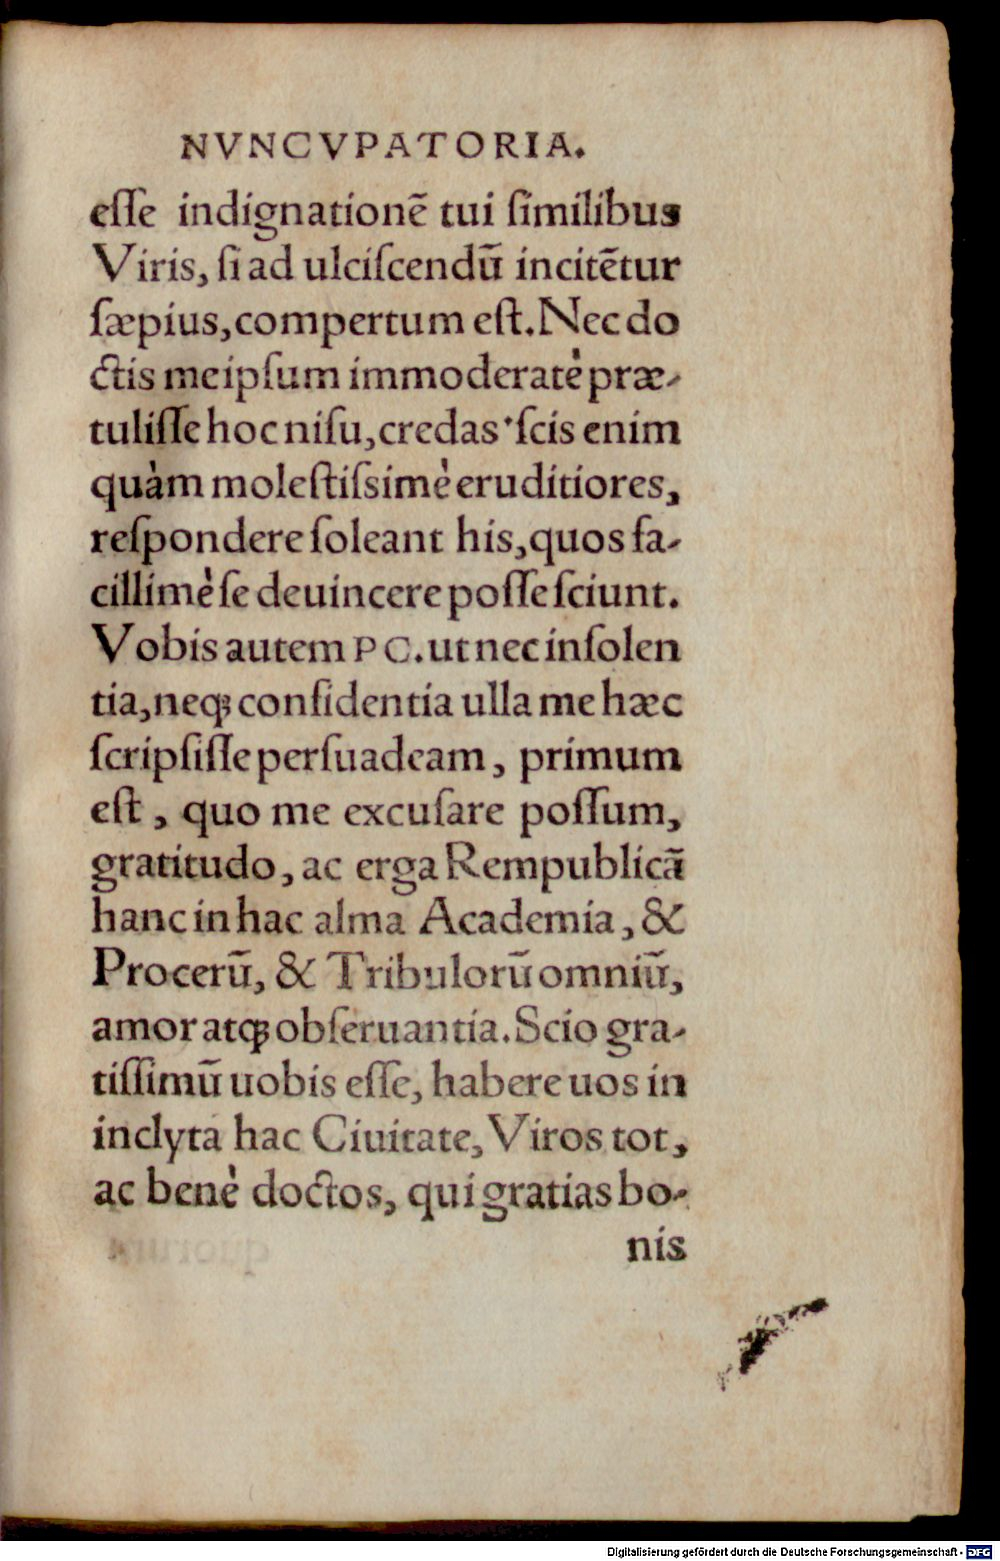 NVNCVPATORIA.
eſſe indignationē tui ſimilibus
Viris, ſi ad ulciſcendū incitētur
ſæpius, compertum eſt. Nec do
ctis meipſum immoderatè præ-
tuliſſe hoc niſu, credas ſcis enim
quàm moleſtiſsimè eruditiores,
reſpondere ſoleant his, quos fa-
cillimè ſe deuincere poſſe ſciunt.
Vobis autem P C. ut nec inſolen
tia, neqꝫ confidentia ulla me hæc
ſcripſiſſe perſuadeam, primum
eſt, quo me excuſare poſſum,
gratitudo, ac erga Rempublicā
hanc in hac alma Academia, &
Procerū, & Tribulorū omniū,
amor atqꝫ obſeruantia. Scio gra-
tiſſimū uobis eſſe, habere uos in
inclyta hac Ciuitate, Viros tot,
ac benè doctos, qui gratias bo-
nis
Digitalisierung gefördert durch die Deutsche Forschungsgemeinschaft - DFG